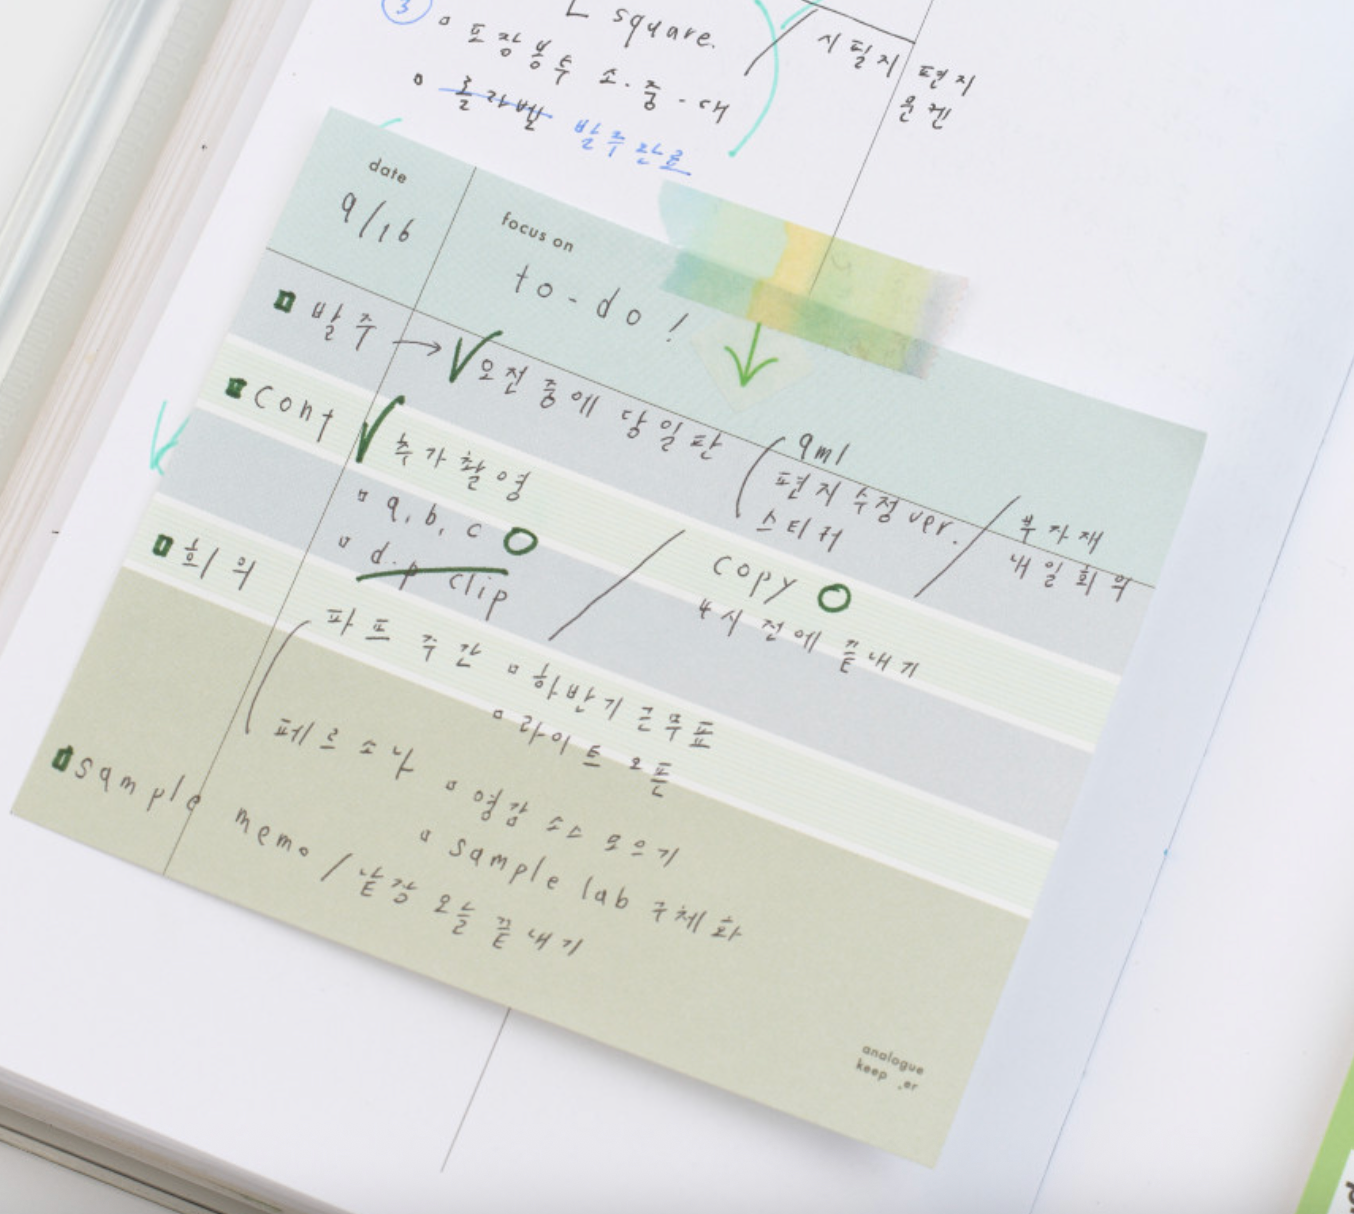 3
ㄴ square.
▫ 포장봉투 소·중·대
▫ 롤라벨 발주완료
시필지
편지
문켄
date
9/16
focus on
to-do!
발주 → ✓ 오전 중에 당일판
9ml
편지 수정 ver.
스티커
부자재
내일회의
Cont ✓ 추가촬영
▫ a, b, c O
▫ d.p clip
copy O
4시 전에 끝내기
회의
파트 주간 ▫ 하반기 근무표
▫ 라이트 오픈
페르소나 ▫ 영감 소스 모으기
▫ sample lab 구체화
sample memo / 낱장 오늘 끝내기
analogue
keep_er